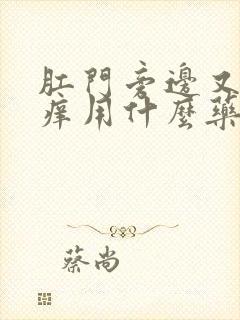 肛門旁邊又
痒用什麼藥
蔡尚